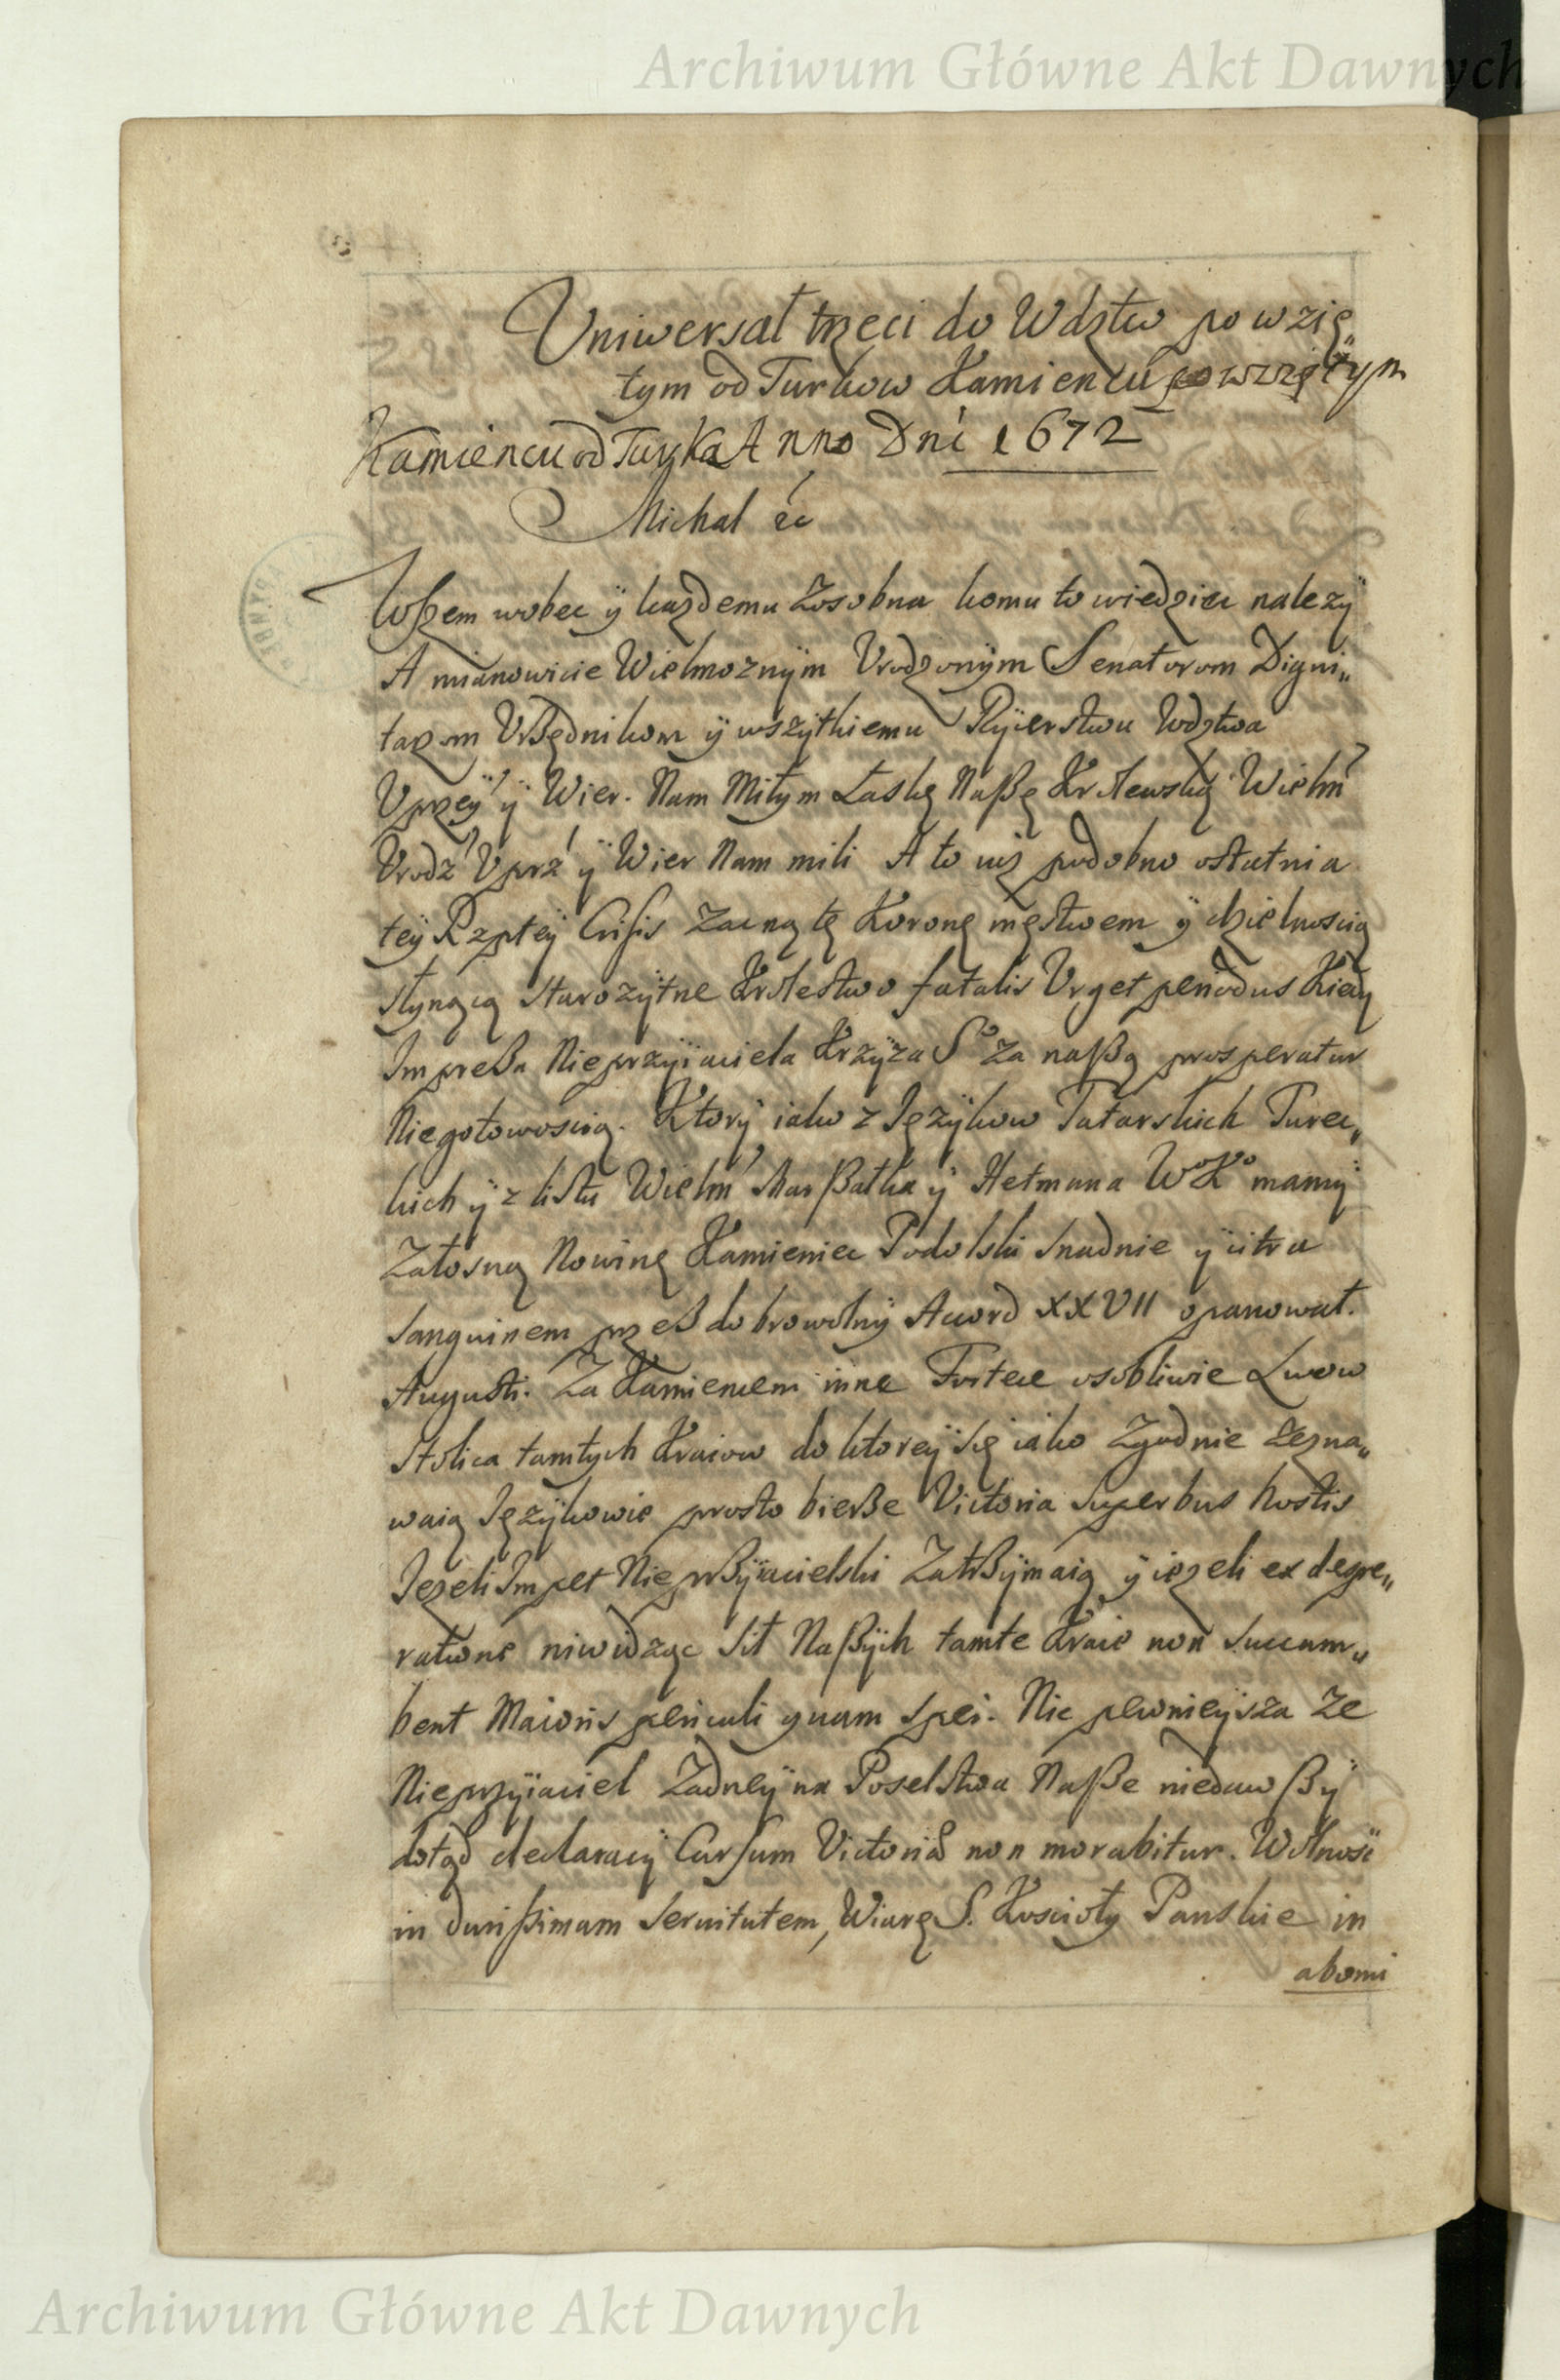 Archiwum Główne Akt Dawnych
Uniwersał trzeci do Wdztw po wzię„
tym od Turkow Kamiencu po wzziętym
Kamiencu od Turka Anno Dni 1672
Michał &c
Wszem wobec ÿ kazdemu Zosobna komu to wiedziec nalezÿ
A mianowicie Wielmoznÿm Vrodzonÿm Senatorom Digni„
tarzom Vrßędnikom ÿ wszÿtkiemu Rÿcerstwu Wdztwa
Vprzeÿ ÿ Wier. Nam Miłym Łaskę Naßę Krolewską Wielm
Vrodz Vprz ÿ Wier Nam mili A to iuz podobno ostatnia
teÿ Rzpteÿ Crisis Zacną tę Koronę męstwem ÿ dzielnoscią
słynącą starozÿtne Krolestwo fatalis Vrget periodus Kiedy
Impreßa Nieprzÿiaciela Krzÿza So za naßą prosperatur
Niegotowoscią. Ktorÿ iako z Jęzÿkow Tatarskich Turec„
kich ÿ z listu Wielm Marßałka ÿ Hetmana Wo Ko mamÿ
Załosną Nowinę Kamieniec Podolski snadnie ÿ citra
sanguinem przeß dobrowolnÿ Accord XXVII opanował.
Augusti. Za Kamiencem inne Fortece osobliwie Lwow
stolica tamtych Kraiow do ktoreÿ się iako Zgodnie Zezna„
waią Jęzÿkowie prosto bierße Victoria superbus hostis
Jezeli Impet Nieprßÿiacielski Zatrßÿmaią ÿ iezeli ex despe„
ratione niwidząc sił Naßÿch tamte Kraie non succum„
bent Maioris periculi quam spei. Nic pewnieÿsza Ze
Nieprzÿiaciel Zadneÿ na Poselstwa Naße niedawßÿ
dotąd declaracÿ Cursum Victoriae non morabitur. Wolnosc
in durißimam seruitutem, Wiarę S. Koscioły Panskie in
abomi
Archiwum Główne Akt Dawnych